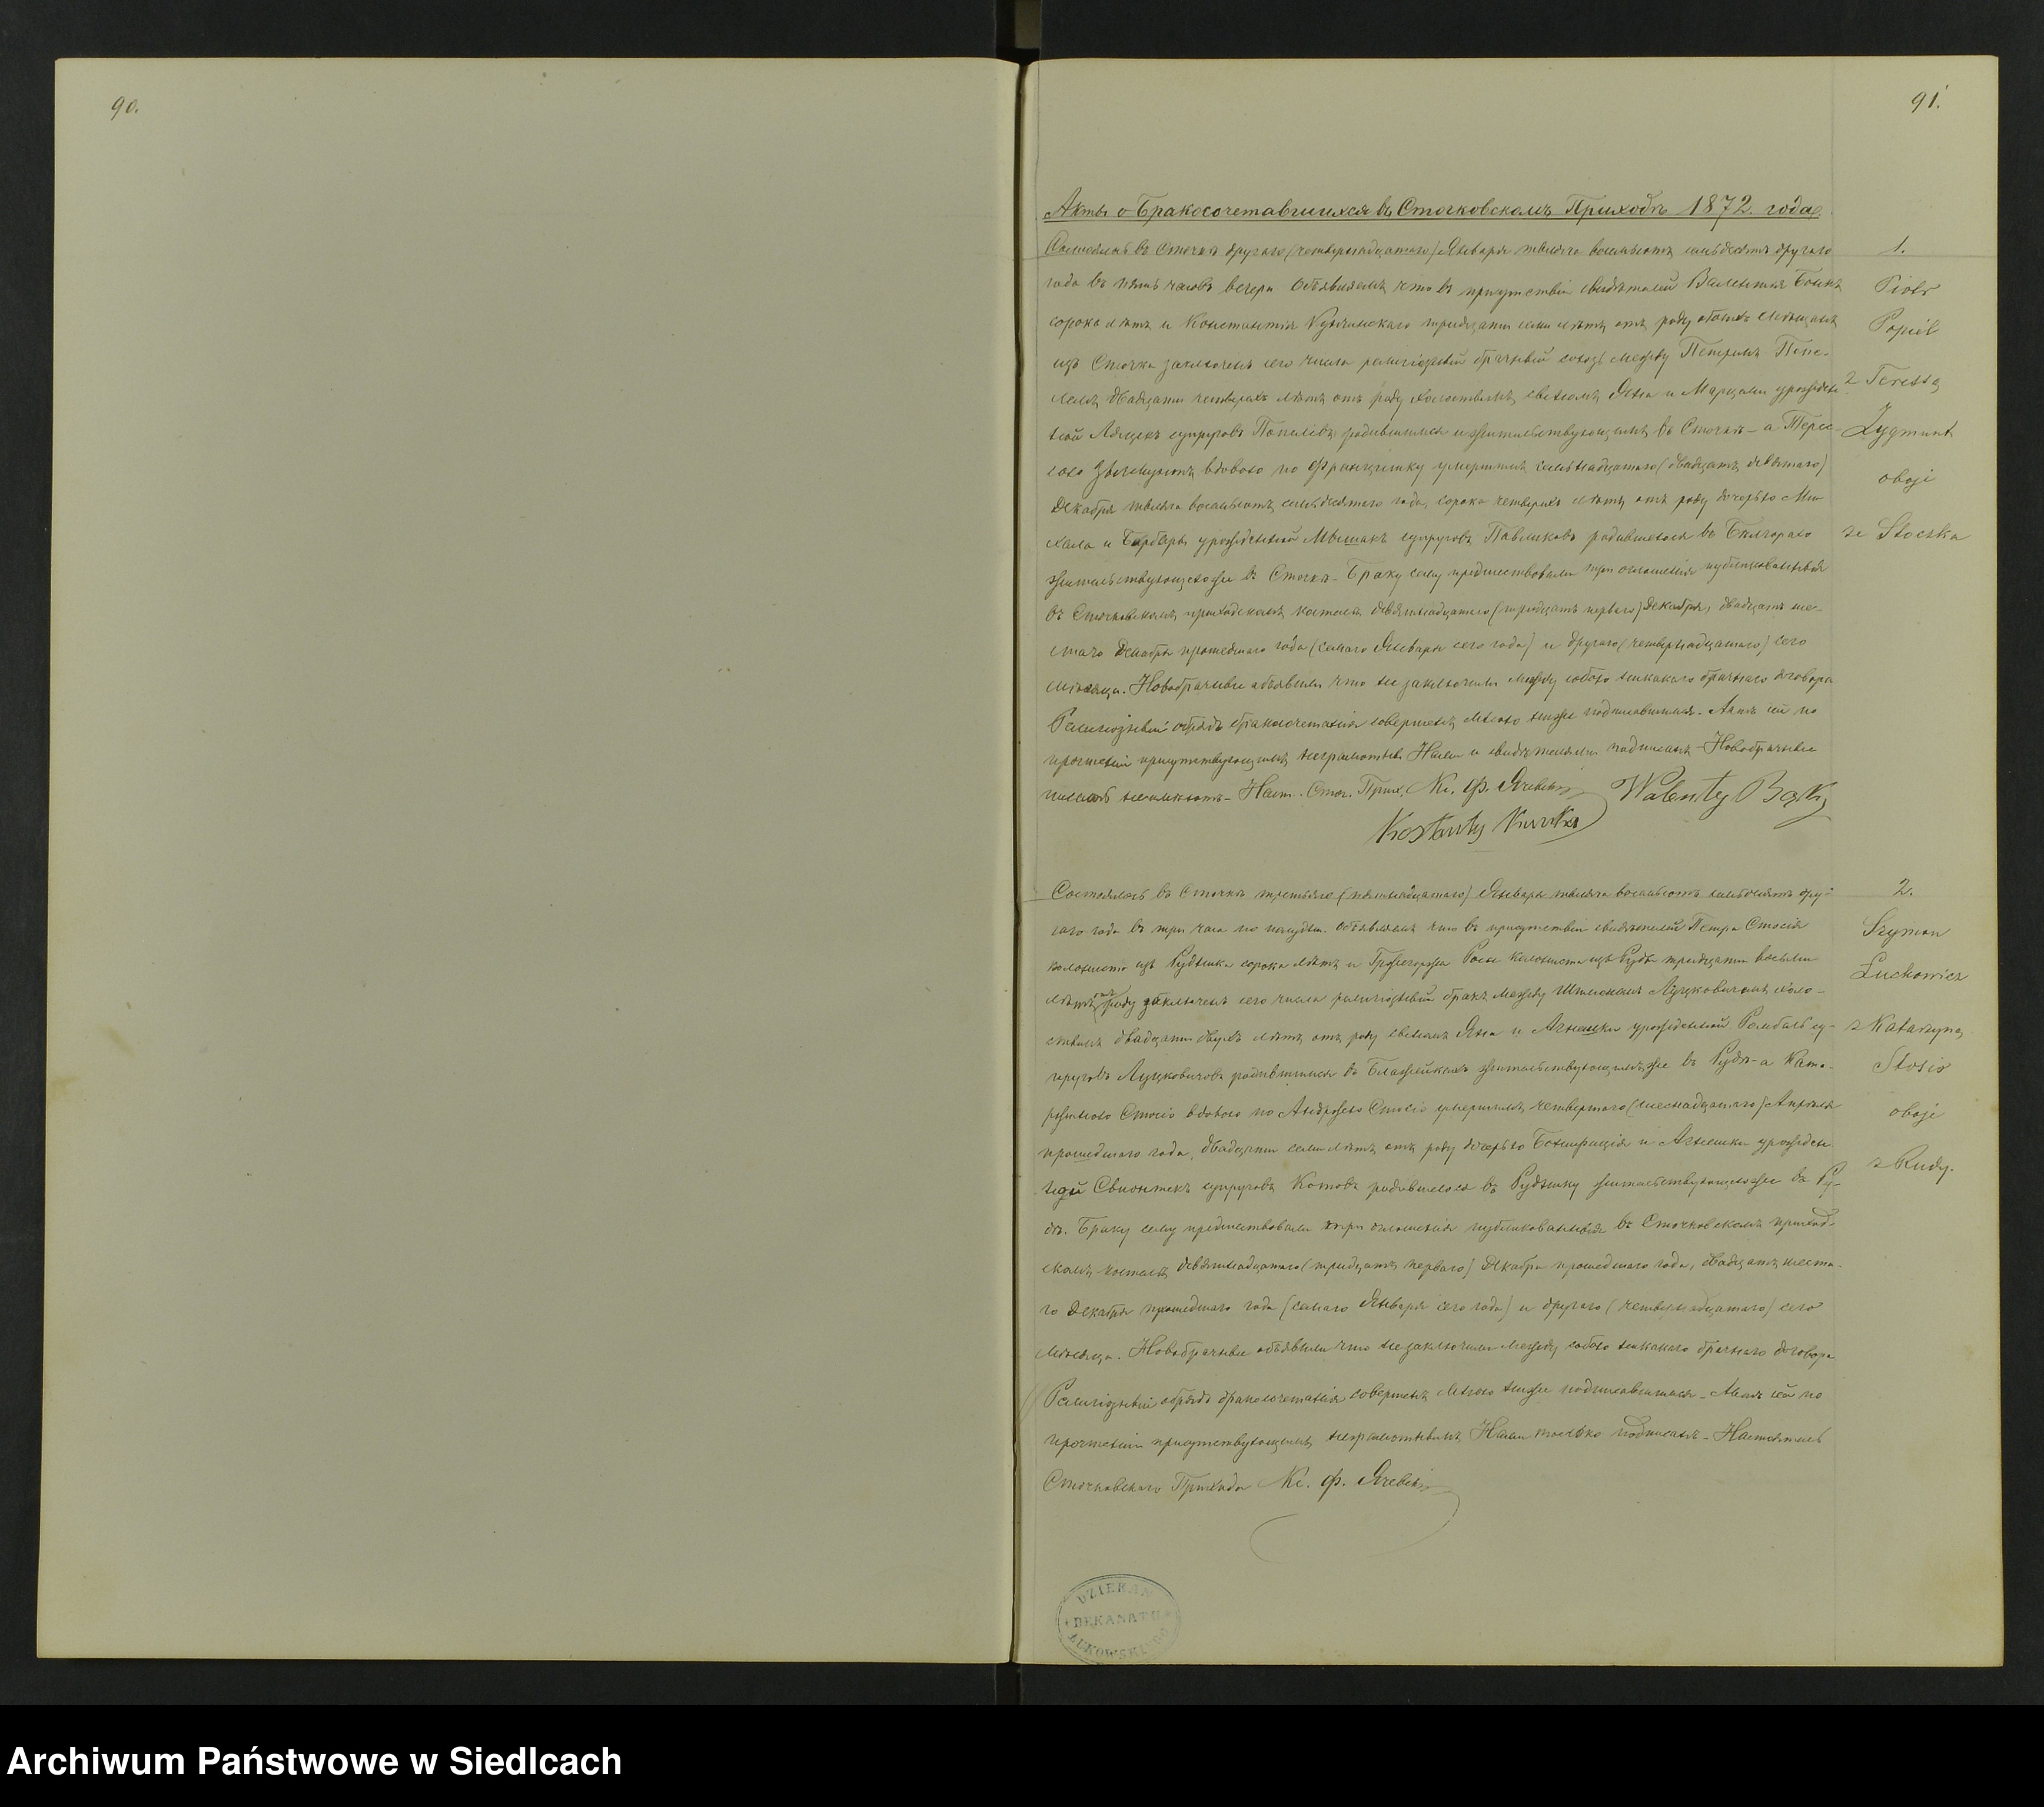 90.
91.
Акты о Бракосочетавшихся въ Сточковскомъ Приходѣ 1872. года
1.
Piotr
Popiel
z Teressą
Zygmunt
oboje
ze Stoczka
Состоялось въ Сточкѣ другаго (четырнадцатаго) Января тысяча восемьсотъ семьдесятъ другаго
года въ пять часовъ вечера. Объявляемъ что въ присутствіи свидѣтелей Валентія
сорока лѣтъ и Константія тридцати семи лѣтъ отъ роду обоихъ мѣщанъ
изъ Сточка заключенъ сего числа религіозный брачный союзъ между Петромъ Попе-
лемъ двадцати четырехъ лѣтъ отъ роду холостымъ, сыномъ Яна и урожден
ной супруговъ Попелёвъ родившимся и жительствующимъ въ Сточкѣ – а Терес-
сою вдовою по Францишку умершимъ семнадцатаго (двадцать девятаго)
Декабря тысяча восемьсотъ семьдесятаго года, сорока четырехъ лѣтъ отъ роду дочерью Ми-
хала и Барбары урожденной супруговъ Павликовъ родившеюся въ
жительствующею же въ Сточкѣ – Браку сему предшествовали три оглашенія публикованныя
въ Сточковскомъ приходскомъ костелѣ девятнадцатаго (тридцать перваго) Декабря, двадцать ше-
стаго Декабря прошедшаго года (семаго Января сего года) и другаго (четырнадцатаго) сего
мѣсяца. Новобрачные объявили что не заключили между собою никакого брачнаго договора
Религіозный обрядъ бракосочетанія совершенъ мною ниже подписавшимся. Актъ сей по
прочтеніи присутствующимъ неграмотны Нами и свидѣтелями подписанъ – Новобрачные
писать неумѣютъ – Наст. Сточ. Прих. Кс. Ф. Ячевскій Walenty Bąk
Kostanty
2.
Szymon
Łuckowicz
z Katarzyną
Stosio
oboje
z Rudy.
Состоялось въ Сточкѣ третьяго (пятнадцатаго) Января тысяча восемьсотъ семьдесятъ дру-
гаго года въ три часа по полудни. Объявляемъ что въ присутствіи свидѣтелей Петра Стосія
колониста изъ Рудника сорока лѣтъ и Гржегоржа колониста изъ Руды тридцати восьми
лѣтъ отъ роду заключенъ сего числа религіозный бракъ между Шимономъ Луцковичемъ холо-
стымъ двадцати двухъ лѣтъ отъ роду сыномъ Яна и Агнешки урожденной су-
пруговъ Луцковичовъ родившимся въ жительствующимъ же въ Рудѣ – а Ката-
ржиною Стосіо вдовою по Андржею Стосіо умершимъ четвертаго (шеснадцатаго) Апрѣля
прошедшаго года, двадцати семи лѣтъ отъ роду дочерью Бонифація и Агнешки урожден
ной Свіонтекъ супруговъ Котовъ родившеюся въ Руднику жительствующею же въ Ру-
дѣ. Браку сему предшествовали три оглашенія публикованныя въ Сточковскомъ приход-
скомъ костелѣ девятнадцатаго (тридцать перваго) Декабря прошедшаго года, двадцать шеста-
го Декабря прошедшаго года (семаго Января сего года) и другаго (четырнадцатаго) сего
мѣсяца. Новобрачные объявили что не заключили между собою никакого брачнаго договора
Религіозный обрядъ бракосочетанія совершенъ мною ниже подписавшимся – Актъ сей по
прочтеніи присутствующимъ неграмотнымъ Нами только подписанъ – Настоятель
Сточковскаго Прихода Кс. Ф. Ячевскій
DZIEKAN
DEKANATU
ŁUKOWSKIEGO
Archiwum Państwowe w Siedlcach